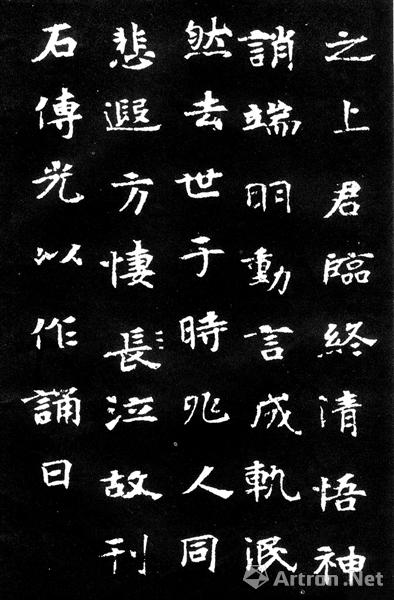 之上君臨終清悟神
誚端明動言成軌泯
然去世于時兆人同
悲遐方悽長泣故刊
石傳光以作誦曰
Artron.Net